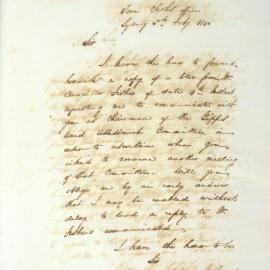 Town Clerk's Office
Sydney 5th Feby 18
Sir
I have the honor to
herewith a copy of a letter from Mr.
Councillor Fisher of date 4th Instant
requesting me to communicate with
you as Chairman of the Gipps
Ward Assessment Committee in
order to ascertain when you
intend to convene another meeting
of that Committee. Will you
oblige me by an early answer
that I may be enabled without
delay to send a reply to Mr.
Fisher's communication
I have the honor to be
Sir